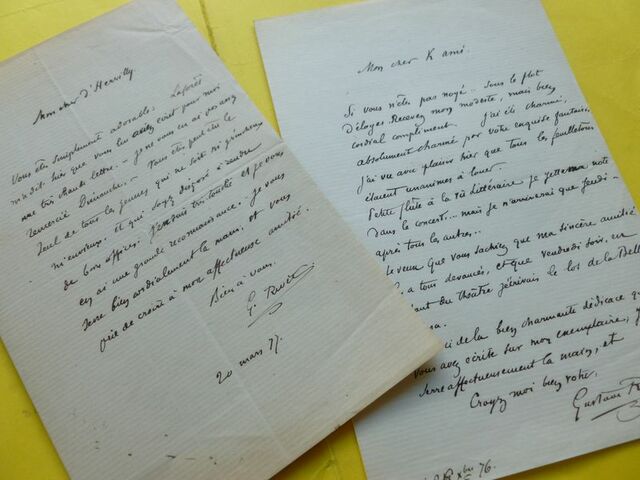 Mon cher d'Hervilly
Vous êtes simplement adorable. Laforêt
m'a dit hier que vous lui avez écrit pour moi
une très chaude lettre. Je ne vous en ai pas
remercié Dimanche. Vous êtes peut être le
seul de tous les jeunes qui ne soit ni
ni envieux, et qui soyez disposé à rendre
de bons offices. J'en suis très touché et je vous
en ai une grande reconnaissance. Je vous
serre bien cordialement la main, et vous
prie de croire à mon affectueuse amitié.
Bien à vous.
G.
20 mars 77.
Mon cher K ami.
Si vous n'êtes pas noyé sous le flot
d'éloges recevez mon modeste, mais bien
cordial compliment. J'ai été charmé,
absolument charmé par votre exquise fantaisie,
J'ai vu avec plaisir hier que tous les feuilletons
étaient unanimes à louer.
Petite flûte à la Vie littéraire je jetterai ma note
dans le concert... mais je n'arriverai que jeudi
après tous les autres...
Je veux que vous sachiez que ma sincère amitié
a tous devancés, et que vendredi soir, en
du théâtre j'écrivais le los de la Belle
de la bien charmante dédicace que
vous avez écrite sur mon exemplaire, je
serre affectueusement la main, et
Croyez moi bien votre
Gustave
76.